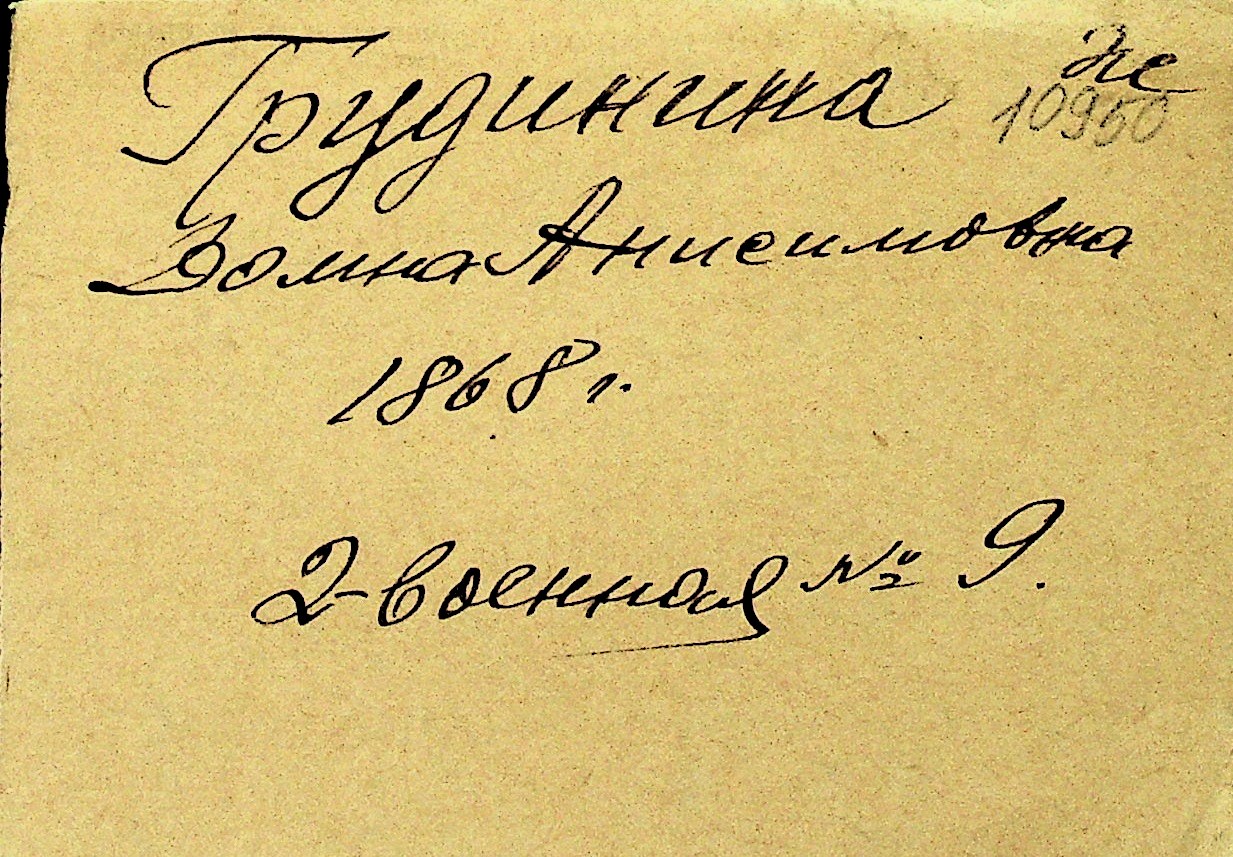 Грудинина Же
10950
Домна Анисимовна
1868 г.
2-военная № 9.